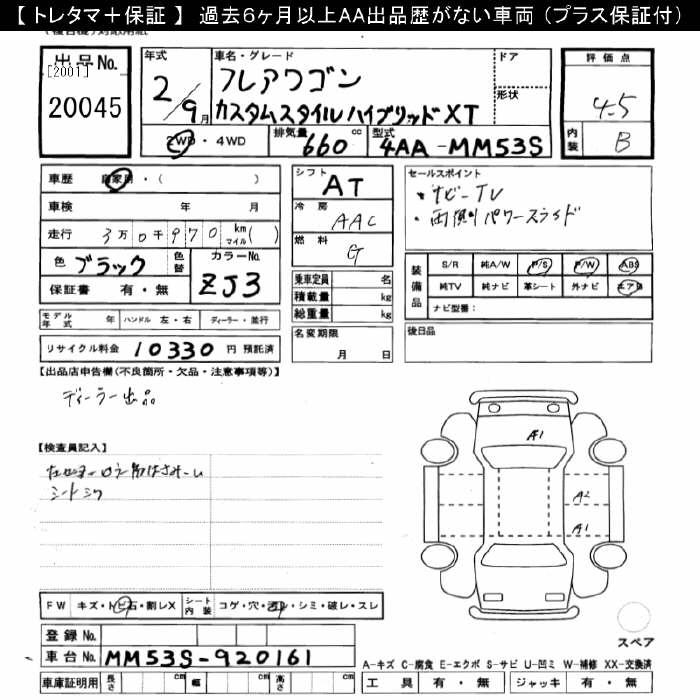 【 トレタマ＋保証 】 過去6ヶ月以上AA出品歴がない車両（プラス保証付）
出品No. [2001] 20045
年式 2/9月
車名・グレード フレアワゴン カスタムスタイルハイブリッドXT
ドア
形状
評価点 4.5
内装 B
2WD・4WD 排気量 660 cc 型式 4AA-MM53S
車歴 自家用・( )
車検 年 月
走行 3万0千970 km マイル ( )
色 ブラック 色替 カラーNo. ZJ3
保証書 有・無
シフト AT
冷房 AAC
燃料 G
乗車定員 名
積載量 kg
総重量 kg
セールスポイント
・ナビーTV
・両側パワースライド
装備品 S/R 純A/W P/S P/W ABS
純TV 純ナビ 革シート 外ナビ エアB
ナビ型番：
モデル年式 年 ハンドル 左・右 ディーラー・並行
名変期限 月 日
後日品
リサイクル料金 10330 円 預託済
【出品店申告欄(不良箇所・欠品・注意事項等)】
ディーラー出品
【検査員記入】
シートシワ
A1
A2
A1
FW キズ・トビ石・割レX シート内装 コゲ・穴・汚レ・シミ・破レ・スレ
登録No.
車台No. MM53S-920161
車庫証明用 長さ cm 幅 cm 高さ cm
スペア
A-キズ C-腐食 E-エクボ S-サビ U-凹ミ W-補修 XX-交換済
工具 有・無 ジャッキ 有・無